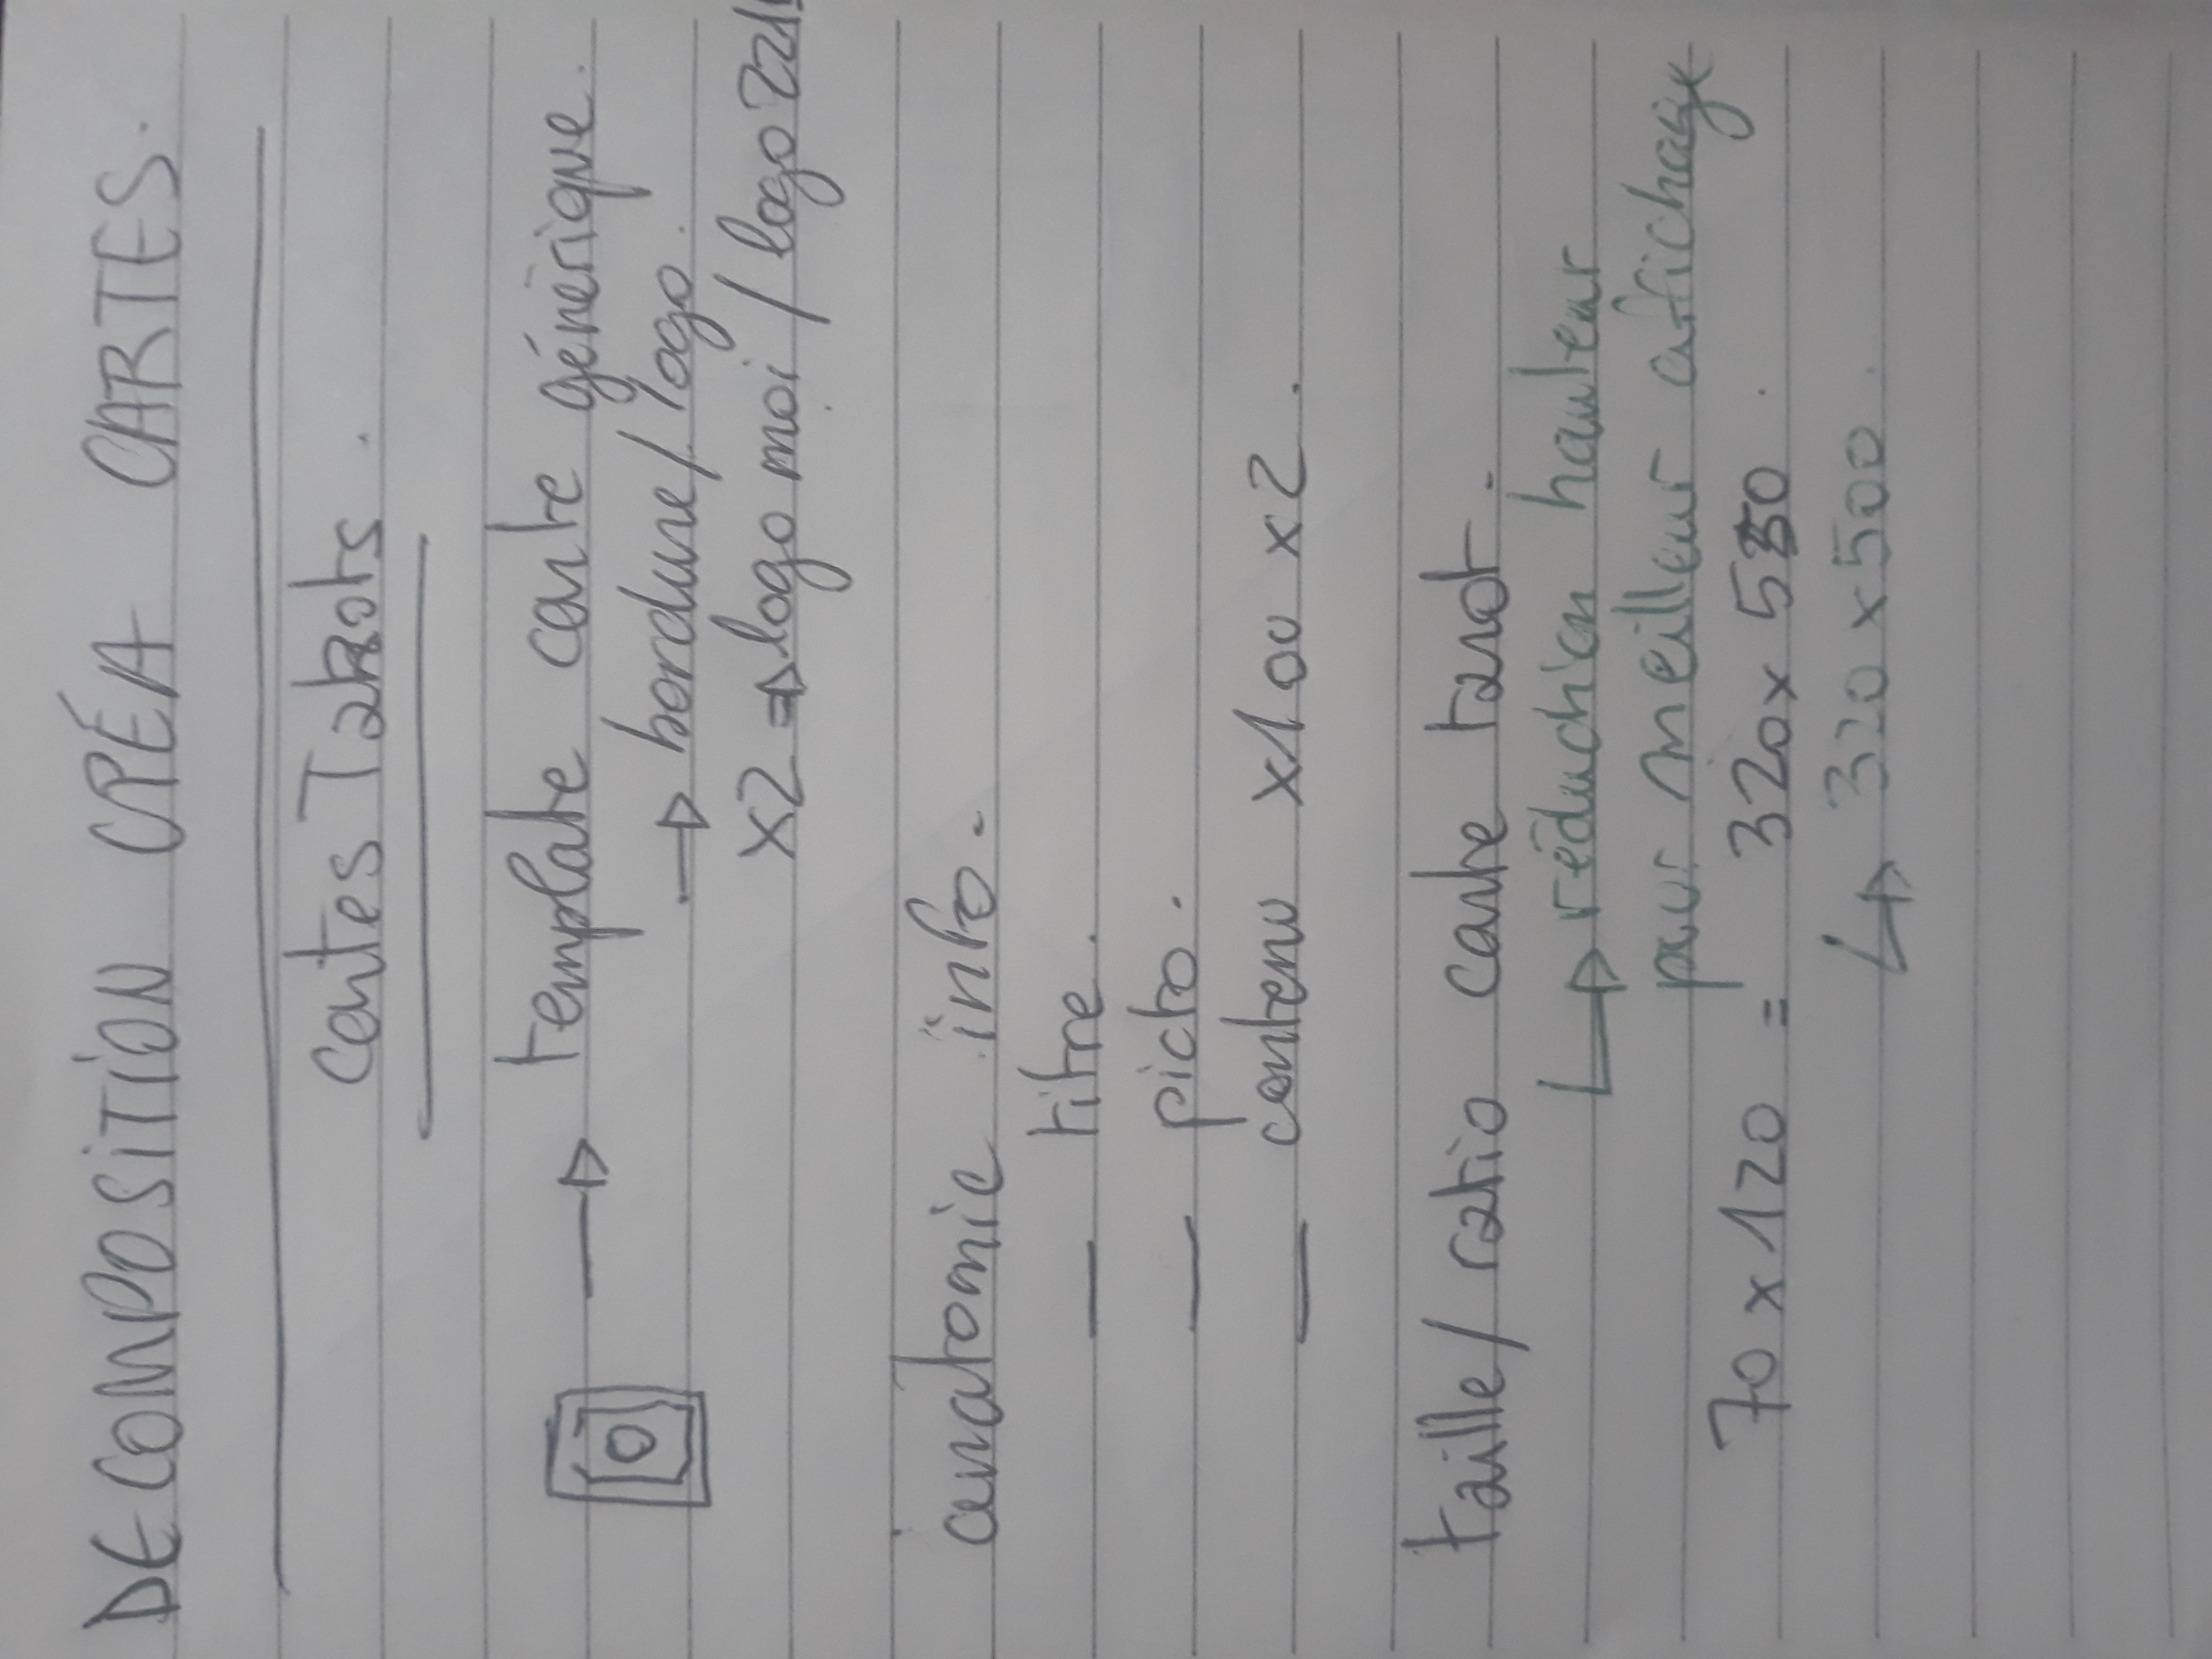 DECOMPOSITION CRÉA CARTES.
Cartes Tarots.
template carte générique.
→ bordure / logo.
x2 ⇒ logo moi / logo 221
anatomie info.
— titre.
— picto.
— contenu x100 x2.
taille / ratio carte tarot.
↳ réduction hauteur
pour meilleur afichage
70 x 120 = 320 x 550.
↳ 320 x 500.